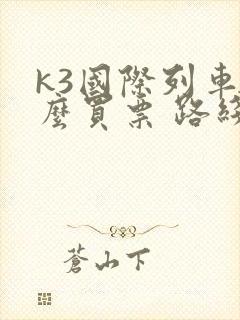 k3國際列車
麼買票 路綫
蒼山下